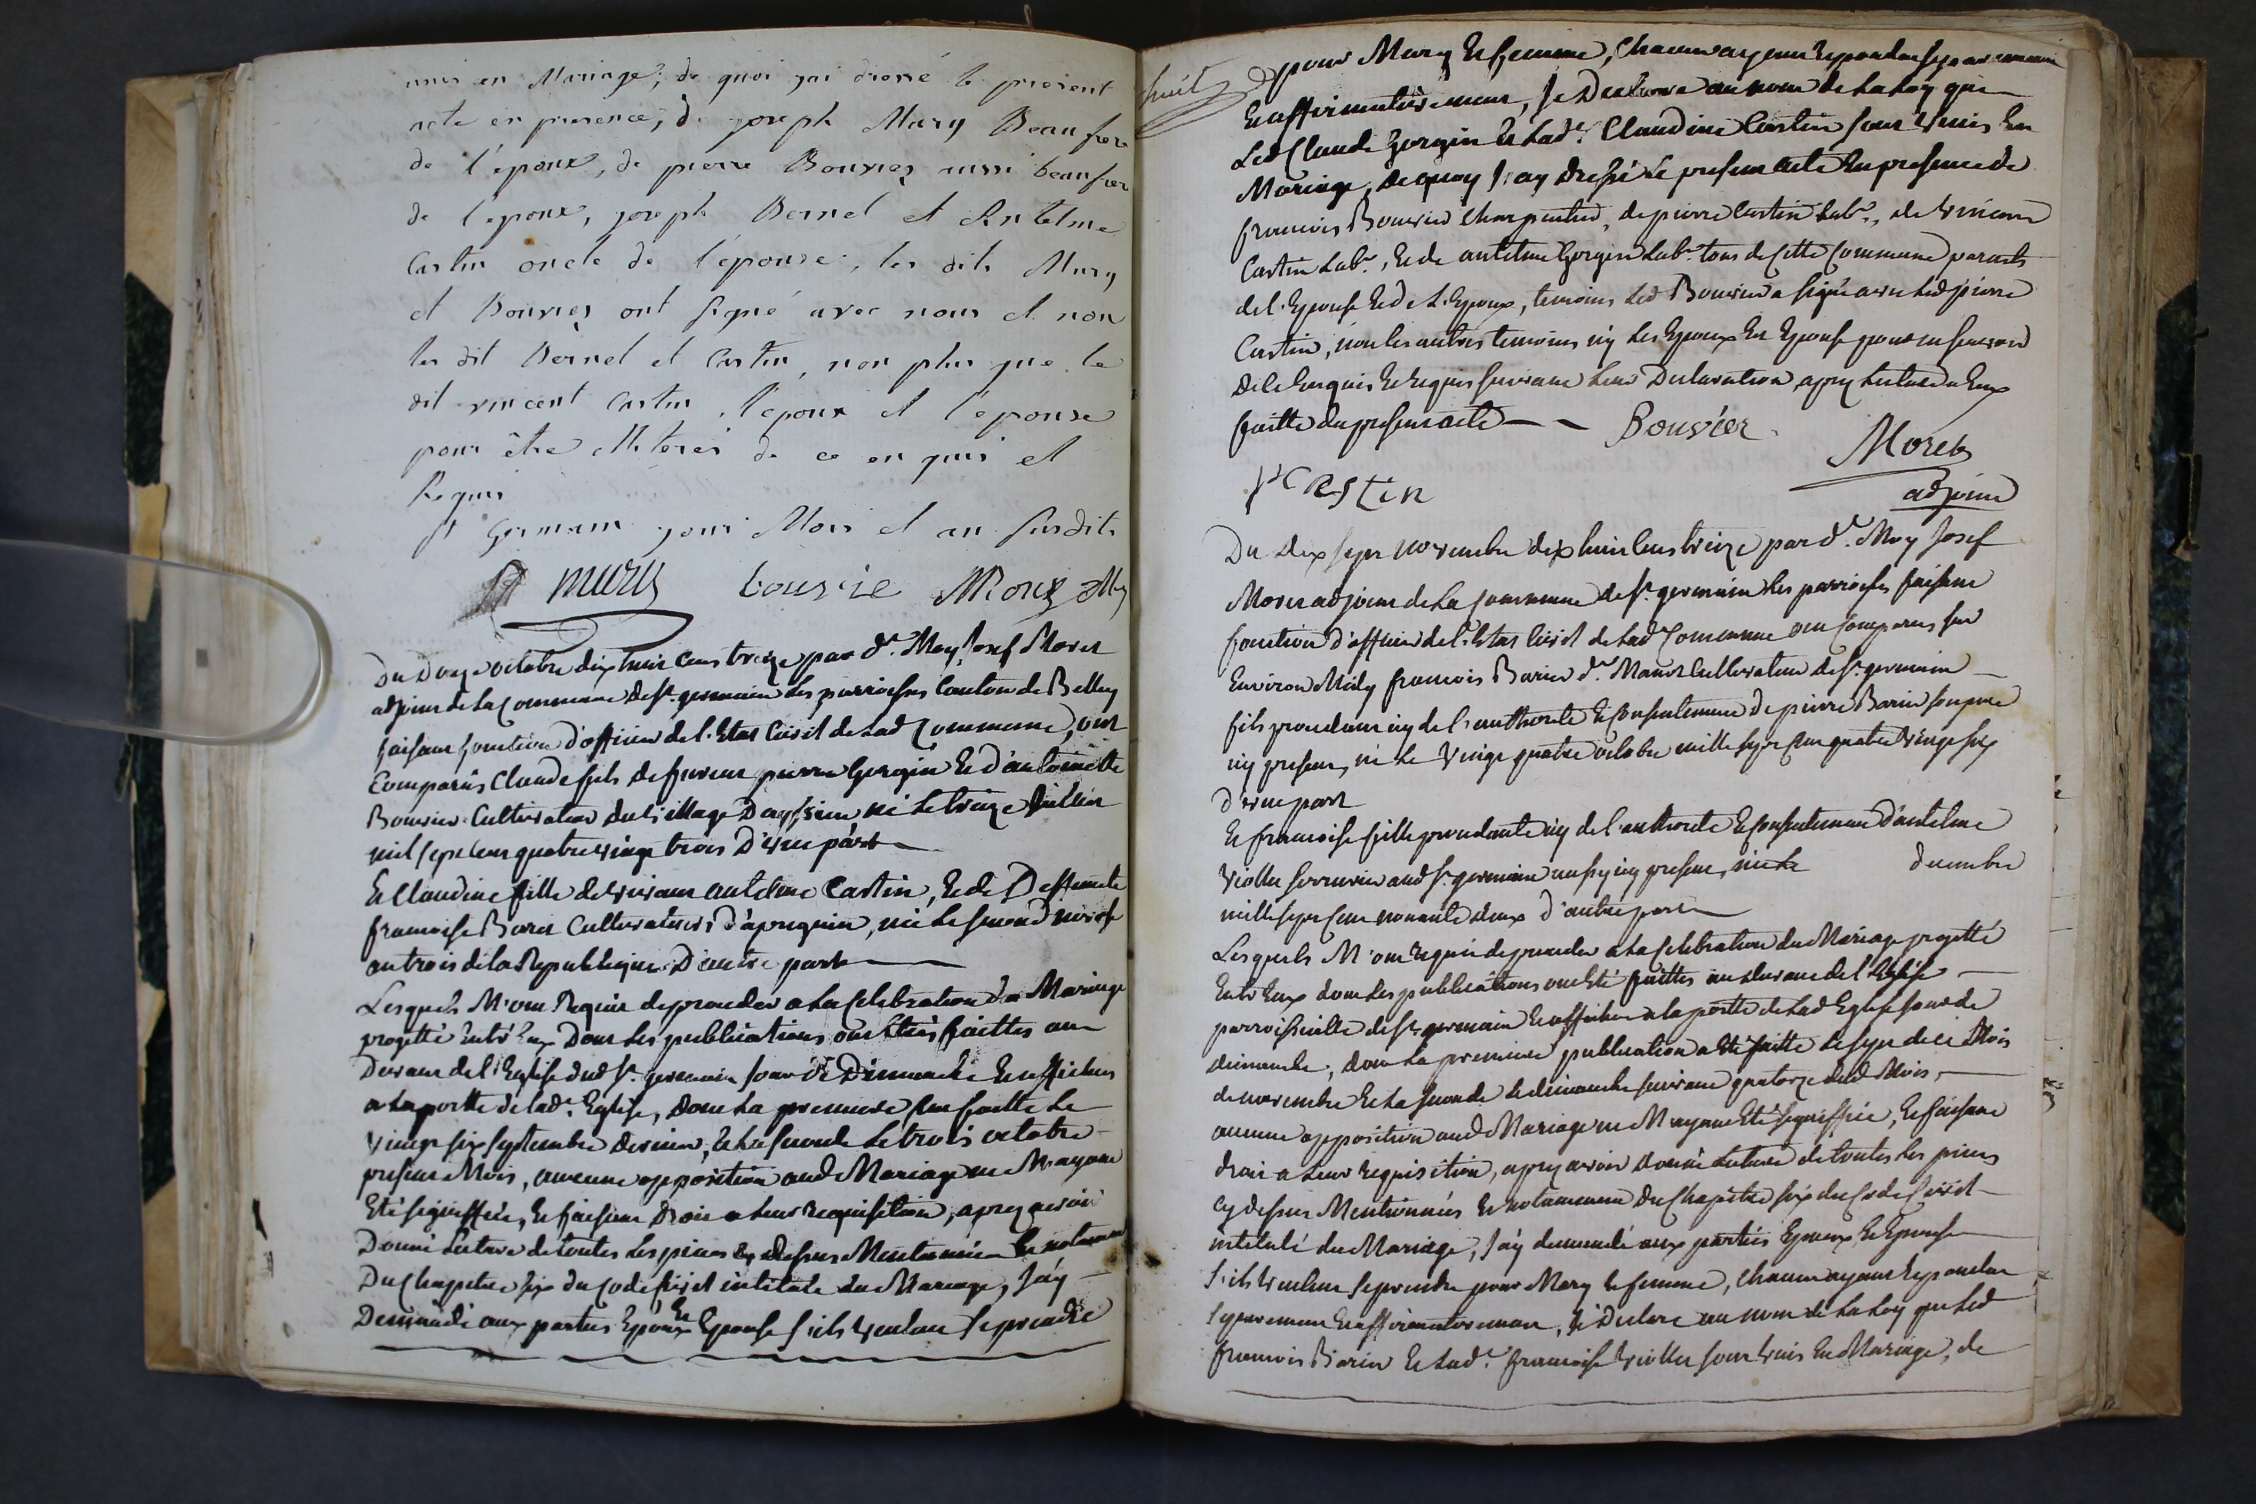 unis en Mariage, de quoi jai dressé le present
acte en presence, de joseph Mury Beaufrere
de l'epoux, de pierre Bouvier aussi beaufrere
de l'epoux, joseph Bernel et Antelme
Castin oncle de l'epouse, les dits Mury
et Bouvier ont signé avec nous et non
les dit Bernel et Castin, non plus que le
dit vincent Castin, l'epoux et l'epouse
pour être illiterés de ce enquis et
Requis
St Germain jour Mois et an susdits
mury bouvie
Du Douze octobre dix huit cent treize par dt. Moy Josef Moret
adjoint de la Commune de St. germain les parroisses Canton de Belley
faisant fonction d'officier de l'Etat Civil de lad Commune, ont
Comparus Claude fils de feu pierre Gorgin Et d'antoinette
Bouvier Cultivateur du village D'ayssieu né le treize Juillet
mil sept cent quatre vingt trois D'une part
Et Claudine fille de vivant antelme Castin, Et de Deffunte
francoise Boret Cultivateurs d'apregnin, née le second nivose
an trois de la Republique D'autre part
Lesquels M'ont Requis de proceder a la Celebration du Mariage
progetté Entr'Eux Dont les publications ont Etés faittes au
Devant de l'Eglise dud St. germain jour de Dimanche Et affichées
a la portte de lade. Eglise, Dont la premiere fut faitte le
vingt six septembre dernier, Et la seconde le trois octobre
present Mois, aucune opposition aud Mariage ne M'ayant
Eté signiffiée, Et faisant Droit a leur requisition, apres avoir
Donné lecture de toutes les pieces cy dessus Mentionnées Et notamment
Du Chapitre six du Code Civil intitulé du Mariage, J'ay
Demandé aux parties Epoux Et Epouse s'ils veulent se prendre
huit
pour Mary Et femme, Chacun ayant repondu separement
Et affirmativement, Je Declare au nom de la Loy que
Led Claude Gorgin Et lade. Claudine Castin sont Unis En
Mariage, De quoy J'ay Dressé le present acte En presence de
francois Bouvier charpentier, de pierre Castin labr., de vincent
Castin labr., Et de antelme Gorgin labr. tous de Cette Commune parents
de l'Epouse Et de L'Epoux, temoins led Bouvier a signé avec led pierre
Castin, non les autres temoins ny les Epoux Et Epouse pour ne savoir
De ce Enquis Et requis suivant leur Declaration apres lecture a Eux
faitte du present acte Bouvier
Moret
P Castin
adjoint
Du Dix sept novembre dix huit Cent treize par dt. Moy Josef
Moret adjoint de la Commune de St. germain les parroisses faisant
fonction d'officier de l'Etat Civil de lade Commune ont Comparus sur
Environ Midy francois Barier dt. Manot Cultivateur de St. germain
fils procedant icy de l'authorité Et Consentement de pierre Barier son pere
icy present, né le vingt quatre octobre mille sept Cent quatre vingt six
d'une part
Et francoise fille procedante icy de l'authorité Et Consentement d'antelme
Viollet serrurier aud St. germain aussy icy present, née le decembre
mille sept Cent nonante deux d'autre part
Lesquels M'ont requis de proceder a la Celebration du Mariage progetté
Entr'Eux dont les publications ont Eté faittes au devant de l'Eglise
parroissialle de St. germain Et affichées a la portte de lad Eglise jour de
dimanche, dont la premiere publication a Eté faitte le sept de ce Mois
de novembre Et la seconde le dimanche suivant quatorze dud Mois,
aucune opposition aud Mariage ne M'ayant Eté signiffiée, Et faisant
droit a leur requisition, apres avoir Donné lecture de toutes les pieces
cy dessus Mentionnées Et notamment Du Chapitre six du Code Civil
intitulé du Mariage, J'ay demandé aux parties Epoux Et Epouse
s'ils veulent se prendre pour Mary Et femme, Chacun ayant repondu
separement Et affirmativement, Je Declare au nom de la Loy que Led
francois Barier Et lade. francoise Viollet sont Unis En Mariage, de